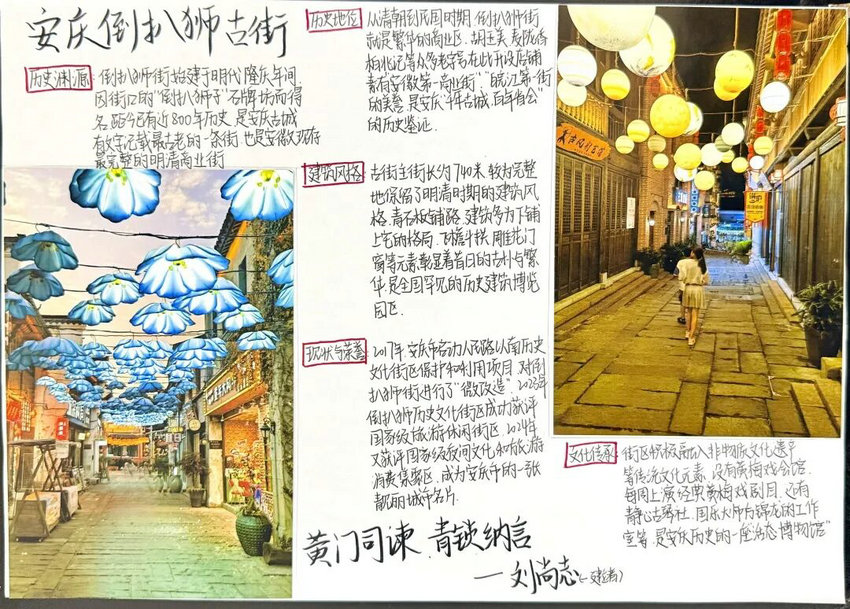 安庆倒扒狮古街
历史渊源: 倒扒狮街始建于明代隆庆年间,
因街口的“倒扒狮子”石牌坊而得
名,距今已有近800年历史,是安庆古城
有文字记载最古老的一条街,也是安徽现存
最完整的明清商业街
历史地位 从清朝到民国时期,倒扒狮街
就是繁华的商业区,胡玉美、麦陇香、
柏兆记等众多老字号在此开设店铺
素有“安徽第一商业街”、“皖江第一街”
的美誉,是安庆“千年古城,百年省会”
的历史鉴证.
建筑风格 古街主街长约740米,较为完整
地保留了明清时期的建筑风
格.青石板铺路,建筑多为下铺
上宅的格局,飞檐斗拱、雕花门
窗等元素彰显着昔日的古朴与繁
华,是全国罕见的历史建筑博览
园区.
现状与荣誉 2017年,安庆市启动人民路以南历史
文化街区保护和利用项目,对倒
扒狮街进行了“微改造”2023年
倒扒狮历史文化街区成功获评
国家级旅游休闲街区,2024年
又获评国家级夜间文化和旅游
消费集聚区,成为安庆市的一张
靓丽城市名片.
文化传承: 街区积极融入非物质文化遗产
等传统文化元素,设有黄梅戏会馆,
每周上演经典黄梅戏剧目,还有
静心古琴社、国乐大师方锦龙的工作
室等,是安庆历史的一座“活态博物馆”
黄门司谏 青锁纳言
—刘尚志